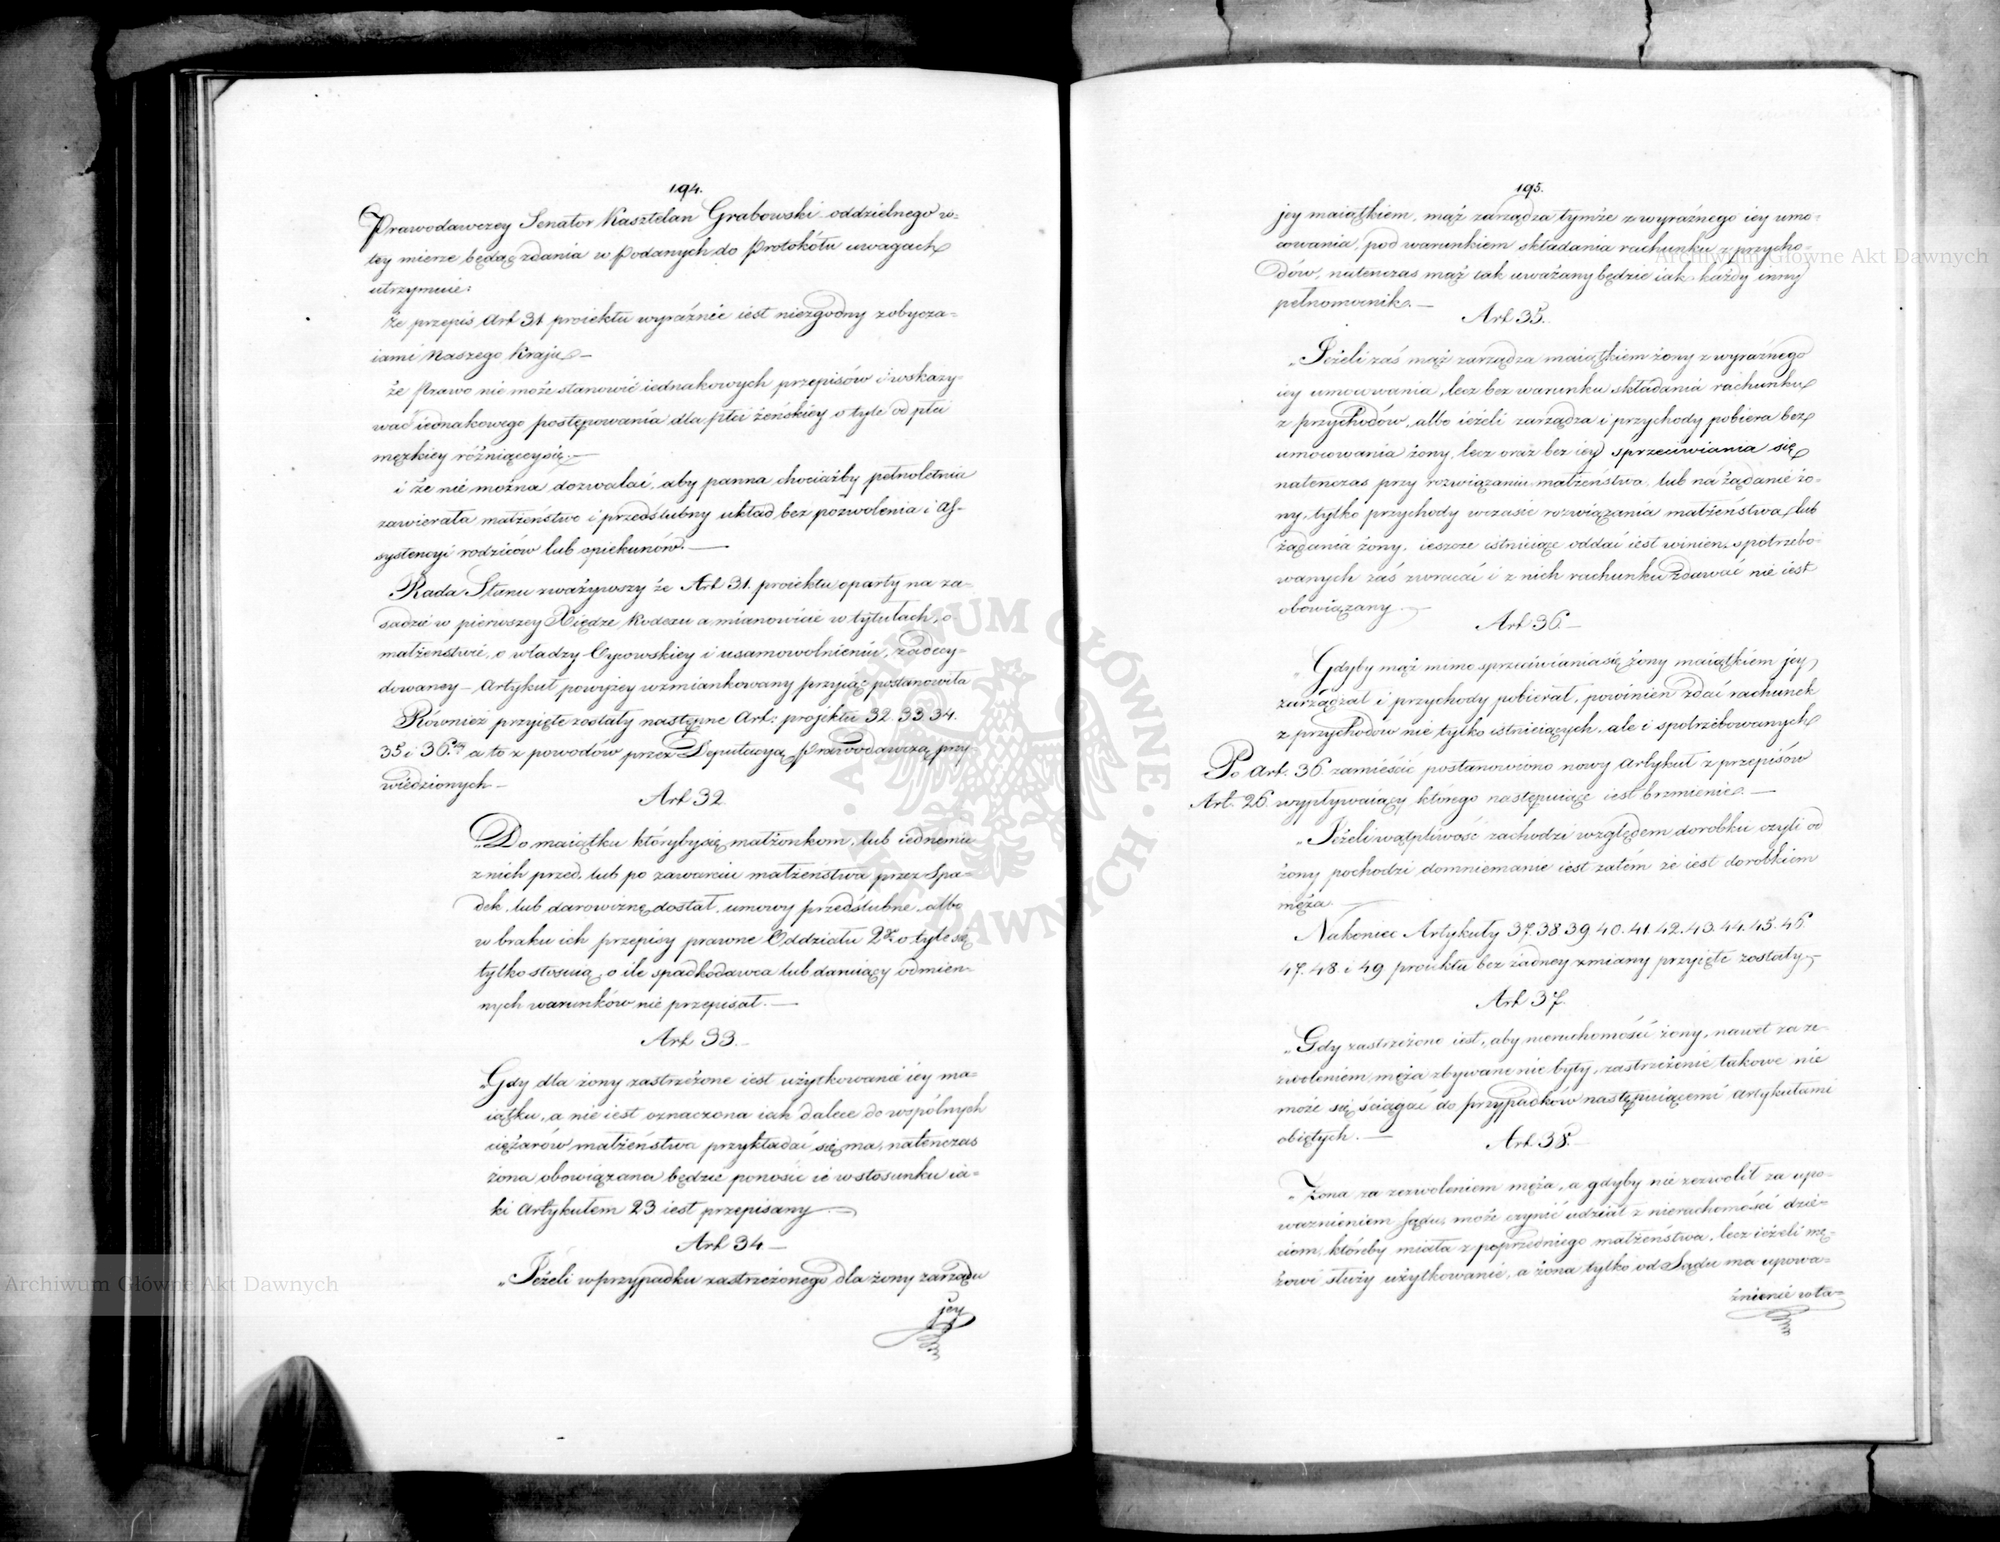 194.
Prawodawczey Senator Kasztelan Grabowski oddzielnego w-
tey mierze będąc zdania w Podanych do Protokółu uwagach
utrzymuie:
że przepis Art 31 proiektu wyraźnie iest niezgodny z obycza-
iami Naszego Kraju. —
że Prawo nie może stanowić iednakowych przepisów i wskazy-
wać iednakowego postępowania dla płci żeńskiey o tyle od płci
męzkiey różniącey się. —
i że nie można dozwalać, aby panna chociażby pełnoletnia
zawierała małżeństwo i przedślubny układ bez pozwolenia i As-
systencyi rodziców lub opiekunów. —
Rada Stanu zważywszy że Art 31. proiektu oparty na za-
sadzie w pierwszey Xiędze Kodexu a mianowicie w tytułach, o
małżeństwie, o władzy Oycowskiey i usamowolnieniu, zadecy-
dowaney — Artykuł powyżey wzmiankowany przyiąć postanowiła
Również przyięte zostały następne Art: projektu 32. 33. 34.
35 i 36. a to z powodów przez Deputacyą Prawodawczą przy-
wiedzionych —
Art 32.
„Do maiątku któryby się małżonkom, lub iednemu
z nich przed, lub po zawarciu małżeństwa przez Spa-
dek, lub darowiznę dostał, umowy przedślubne, albo
w braku ich przepisy prawne Oddziału 2go o tyle się
tylko stosuią, o ile spadkodawca lub daruiący odmien-
nych warunków nie przepisał. —
Art 33. —
„Gdy dla żony zastrzeżone iest użytkowanie iey ma-
iątku, a nie iest oznaczona iak dalece do wspólnych
ciężarów małżeństwa przykładać się ma, natenczas
żona obowiązana będzie ponosić ie w stosunku ia-
ki Artykułem 23 iest przepisany. —
Art 34. —
„Jeżeli w przypadku zastrzeżonego dla żony zarządu
jey
195.
jey maiątkiem, mąż zarządza tymże z wyraźnego iey umo-
cowania, pod warunkiem składania rachunku z przycho-
dów, natenczas mąż tak uważany będzie iak każdy inny
pełnomocnik. —
Art 35.
„Jeżeli zaś mąż zarządza maiątkiem żony z wyraźnego
iey umocowania, lecz bez warunku składania rachunku
z przychodów, albo ieżeli zarządza i przychody pobiera bez
umocowania żony, lecz oraz bez iey sprzeciwiania się,
natenczas przy rozwiązaniu małżeństwa, lub na żądanie żo-
ny, tylko przychody w czasie rozwiązania małżeństwa, lub
żądania żony, ieszcze istnieiące oddać iest winien, spotrzebo-
wanych zaś zwracać i z nich rachunku zdawać nie iest
obowiązany. —
Art 36. —
„Gdyby mąż mimo sprzeciwiania się żony maiątkiem jey
zarządzał i przychody pobierał, powinien zdać rachunek
z przychodów nie tylko istnieiących, ale i spotrzebowanych
Po Art. 36. zamieścić postanowiono nowy Artykuł z przepisów
Art. 26. wypływaiący którego następuiące iest brzmienie. —
„Jeżeli wątpliwość zachodzi względem dorobku czyli od
żony pochodzi domniemanie iest zatém że iest dorobkiem
męża. —
Nakoniec Artykuły 37. 38 39 40. 41. 42. 43. 44. 45. 46.
47. 48. i 49 proiektu bez żadney zmiany przyięte zostały —
Art 37.
„Gdy zastrzeżono iest, aby nieruchomości żony, nawet za ze-
zwoleniem męża zbywane nie były, zastrzeżenie takowe nie
może się ściągać do przypadków następuiącemi Artykułami
obiętych. —
Art. 38. —
„Żona za zezwoleniem męża, a gdyby nie zezwolił za upo-
ważnieniem Sądu, może czynić udział z nieruchomości dzie-
ciom, któreby miała z poprzedniego małżeństwa, lecz ieżeli mę-
żowi służy użytkowanie, a żona tylko od Sądu ma upowa-
żnienie wta-
ARCHIWUM GŁÓWNE
AKT DAWNYCH
Archiwum Główne Akt Dawnych
Archiwum Główne Akt Dawnych